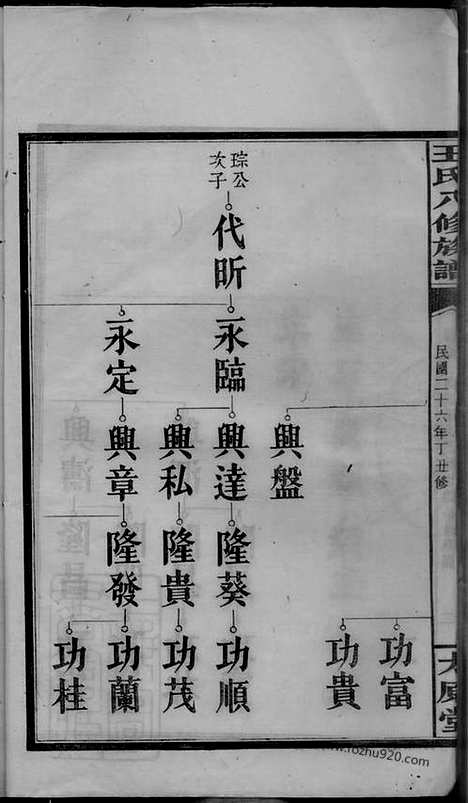 王氏八修族譜
民國二十六年丁丑修
大原堂
功富
功貴
興盤
琮公次子
代昕
永臨
興達
隆葵
功順
興私
隆貴
功茂
永定
興章
隆發
功蘭
功桂
www.rozhu920.com